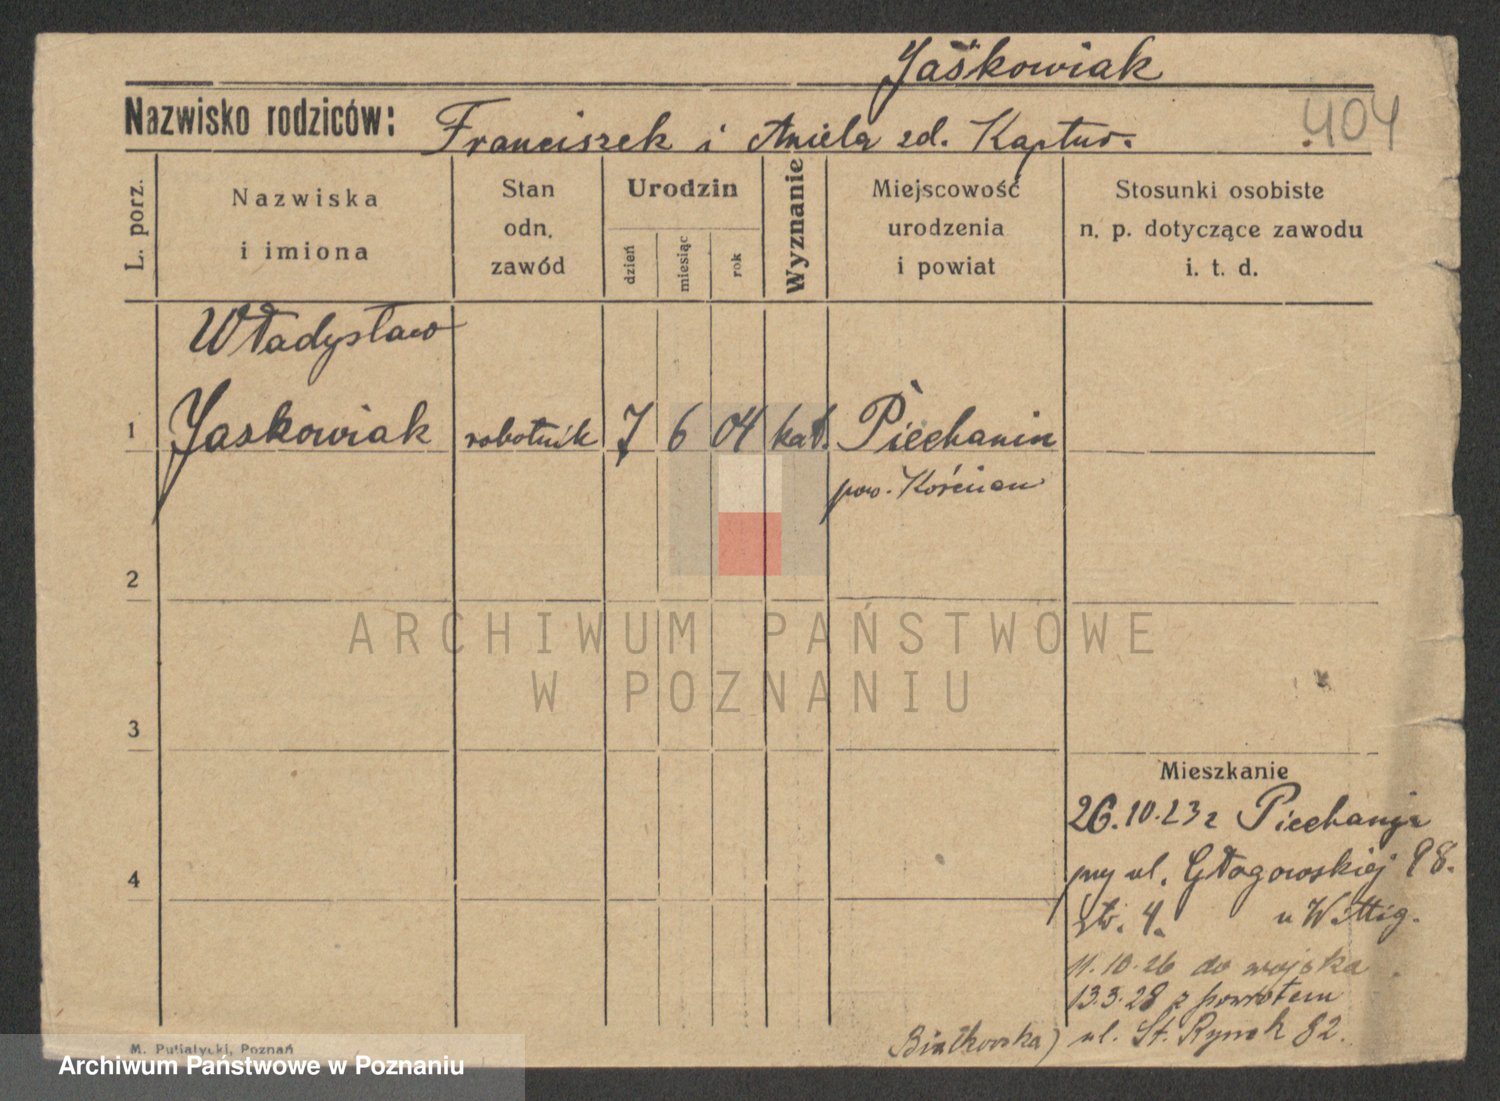 Jaśkowiak
Nazwisko rodziców: Franciszek i Aniela zd. Kaptur.
404
L. porz.
Nazwiska
i imiona
Stan
odn.
zawód
Urodzin
dzień
miesiąc
rok
Wyznanie
Miejscowość
urodzenia
i powiat
Stosunki osobiste
n. p. dotyczące zawodu
i. t. d.
Władysław
1 Jaskowiak robotnik 7 6 04 kat. Piechanin
pow. Kościan
2
ARCHIWUM PAŃSTWOWE
W POZNANIU
3
Mieszkanie
26.10.23 z Piechanin
przy ul. Głogowskiej 98.
4
u Wittig.
11.10.26 do wojska
13.3.28 z powrotem
Białkowska) ul. St. Rynek 82.
M. Putiatycki, Poznań
Archiwum Państwowe w Poznaniu